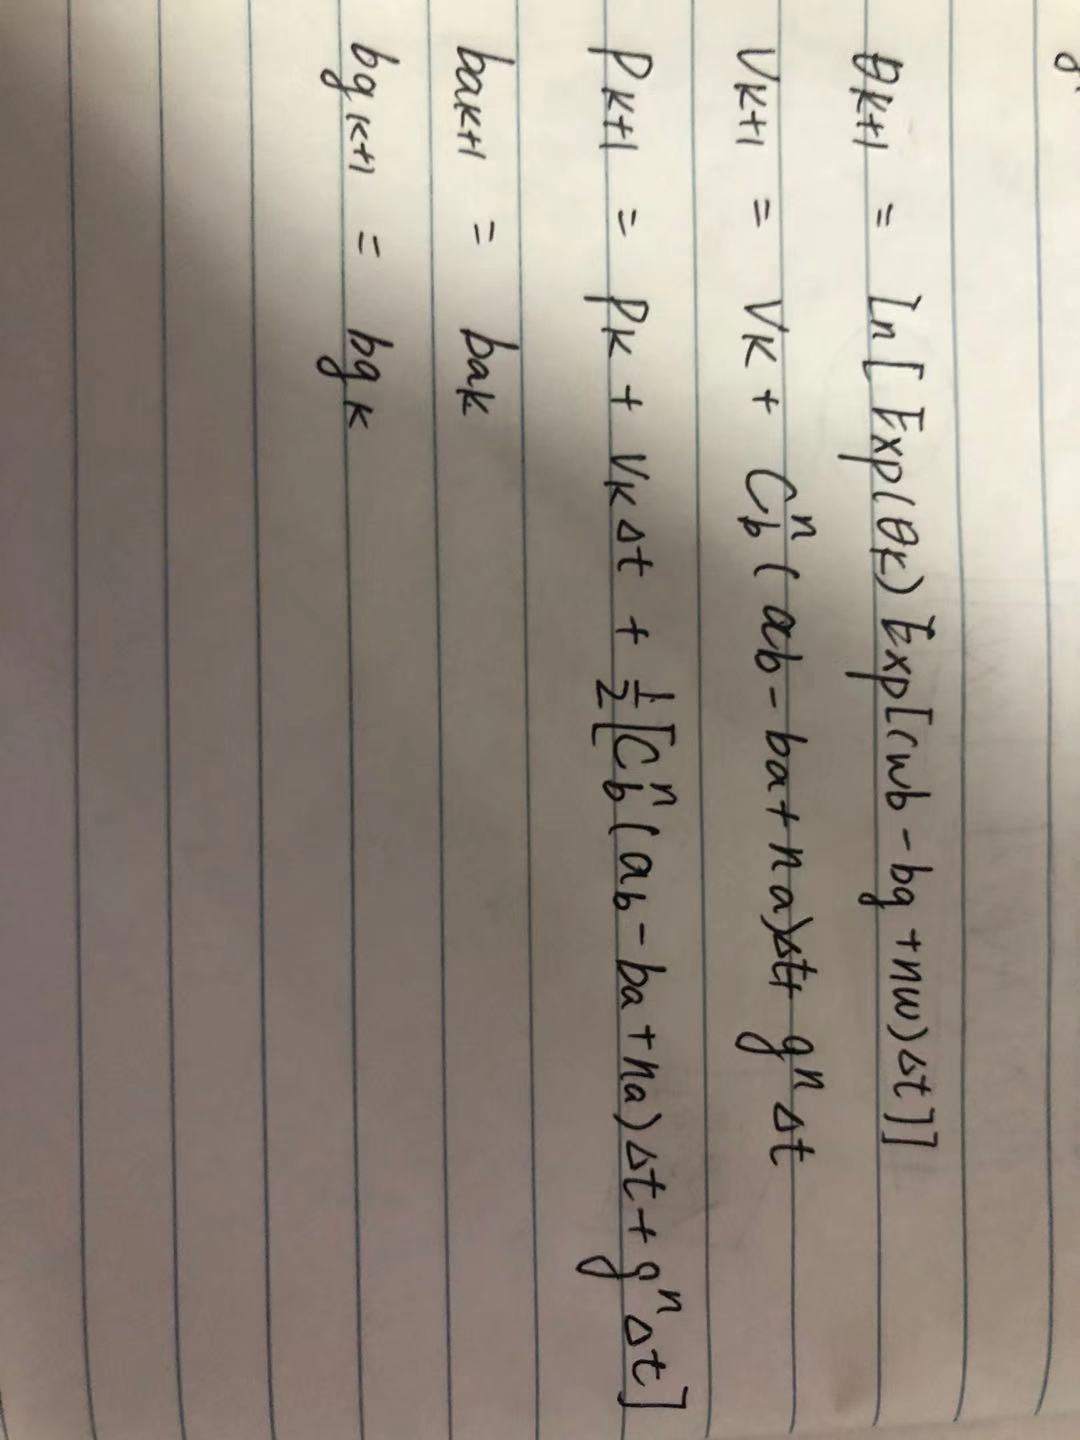 θk+1 = ln[Exp(θk)Exp[(wb-bg+nw)Δt]]
Vk+1 = Vk + C_b^n(ab-ba+na)Δt+ g^nΔt
Pk+1 = Pk + VkΔt + 1/2[C_b^n(ab-ba+na)Δt+g^nΔt]
bak+1 = bak
bgk+1 = bgk